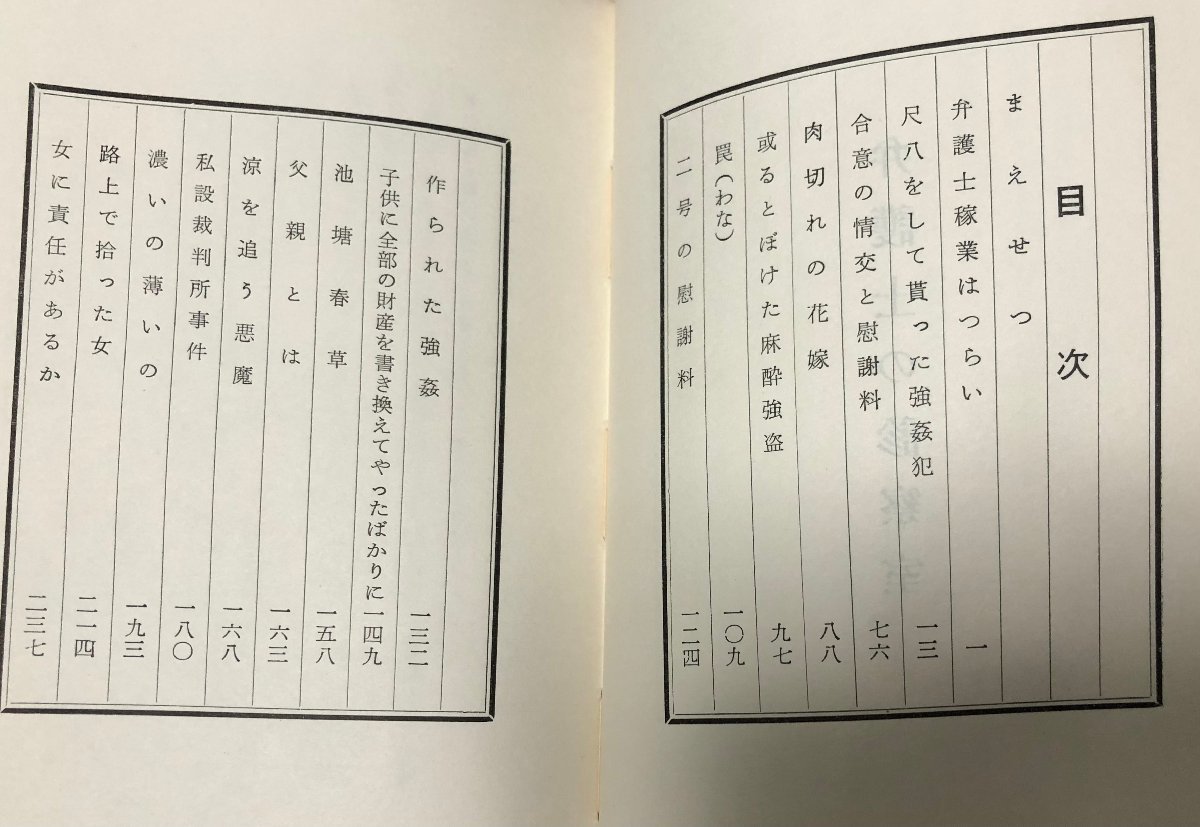 目次
まえせつ
弁護士稼業はつらい 一
尺八をして貰った強姦犯 一三
合意の情交と慰謝料 七六
肉切れの花嫁 八八
或るとぼけた麻酔強盗 九七
罠(わな) 一〇九
二号の慰謝料 一二四
作られた強姦 一三二
子供に全部の財産を書き換えてやったばかりに 一四九
池塘春草 一五八
父親とは 一六三
涼を追う悪魔 一六八
私設裁判所事件 一八〇
濃いの薄いの 一九三
路上で拾った女 二一四
女に責任があるか 二三七